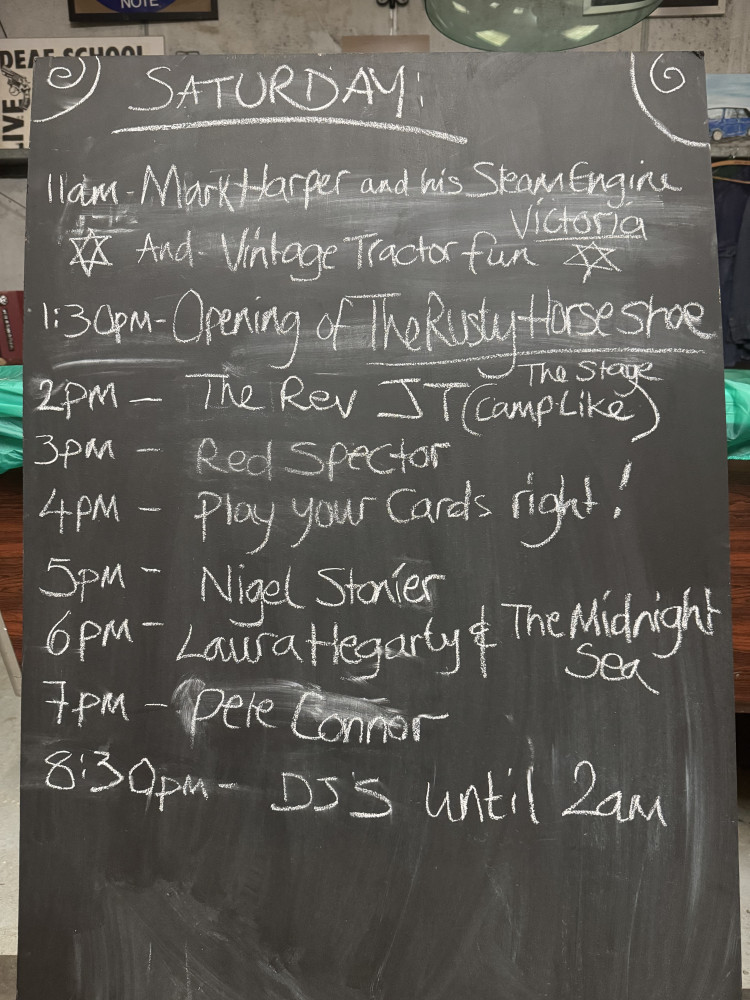 NOTE
DEAF SCHOOL
LIVE
SATURDAY:
11am - Mark Harper and his Steam Engine
Victoria
And Vintage Tractor fun
1:30pm - Opening of The Rusty Horseshoe
The Stage
2pm - The Rev JT (Camp Like)
3pm - Red Spector
4pm - Play your Cards right!
5pm - Nigel Stonier
6pm - Laura Hegarty & The Midnight
Sea
7pm - Pete Connor
8:30pm - DJ'S until 2am